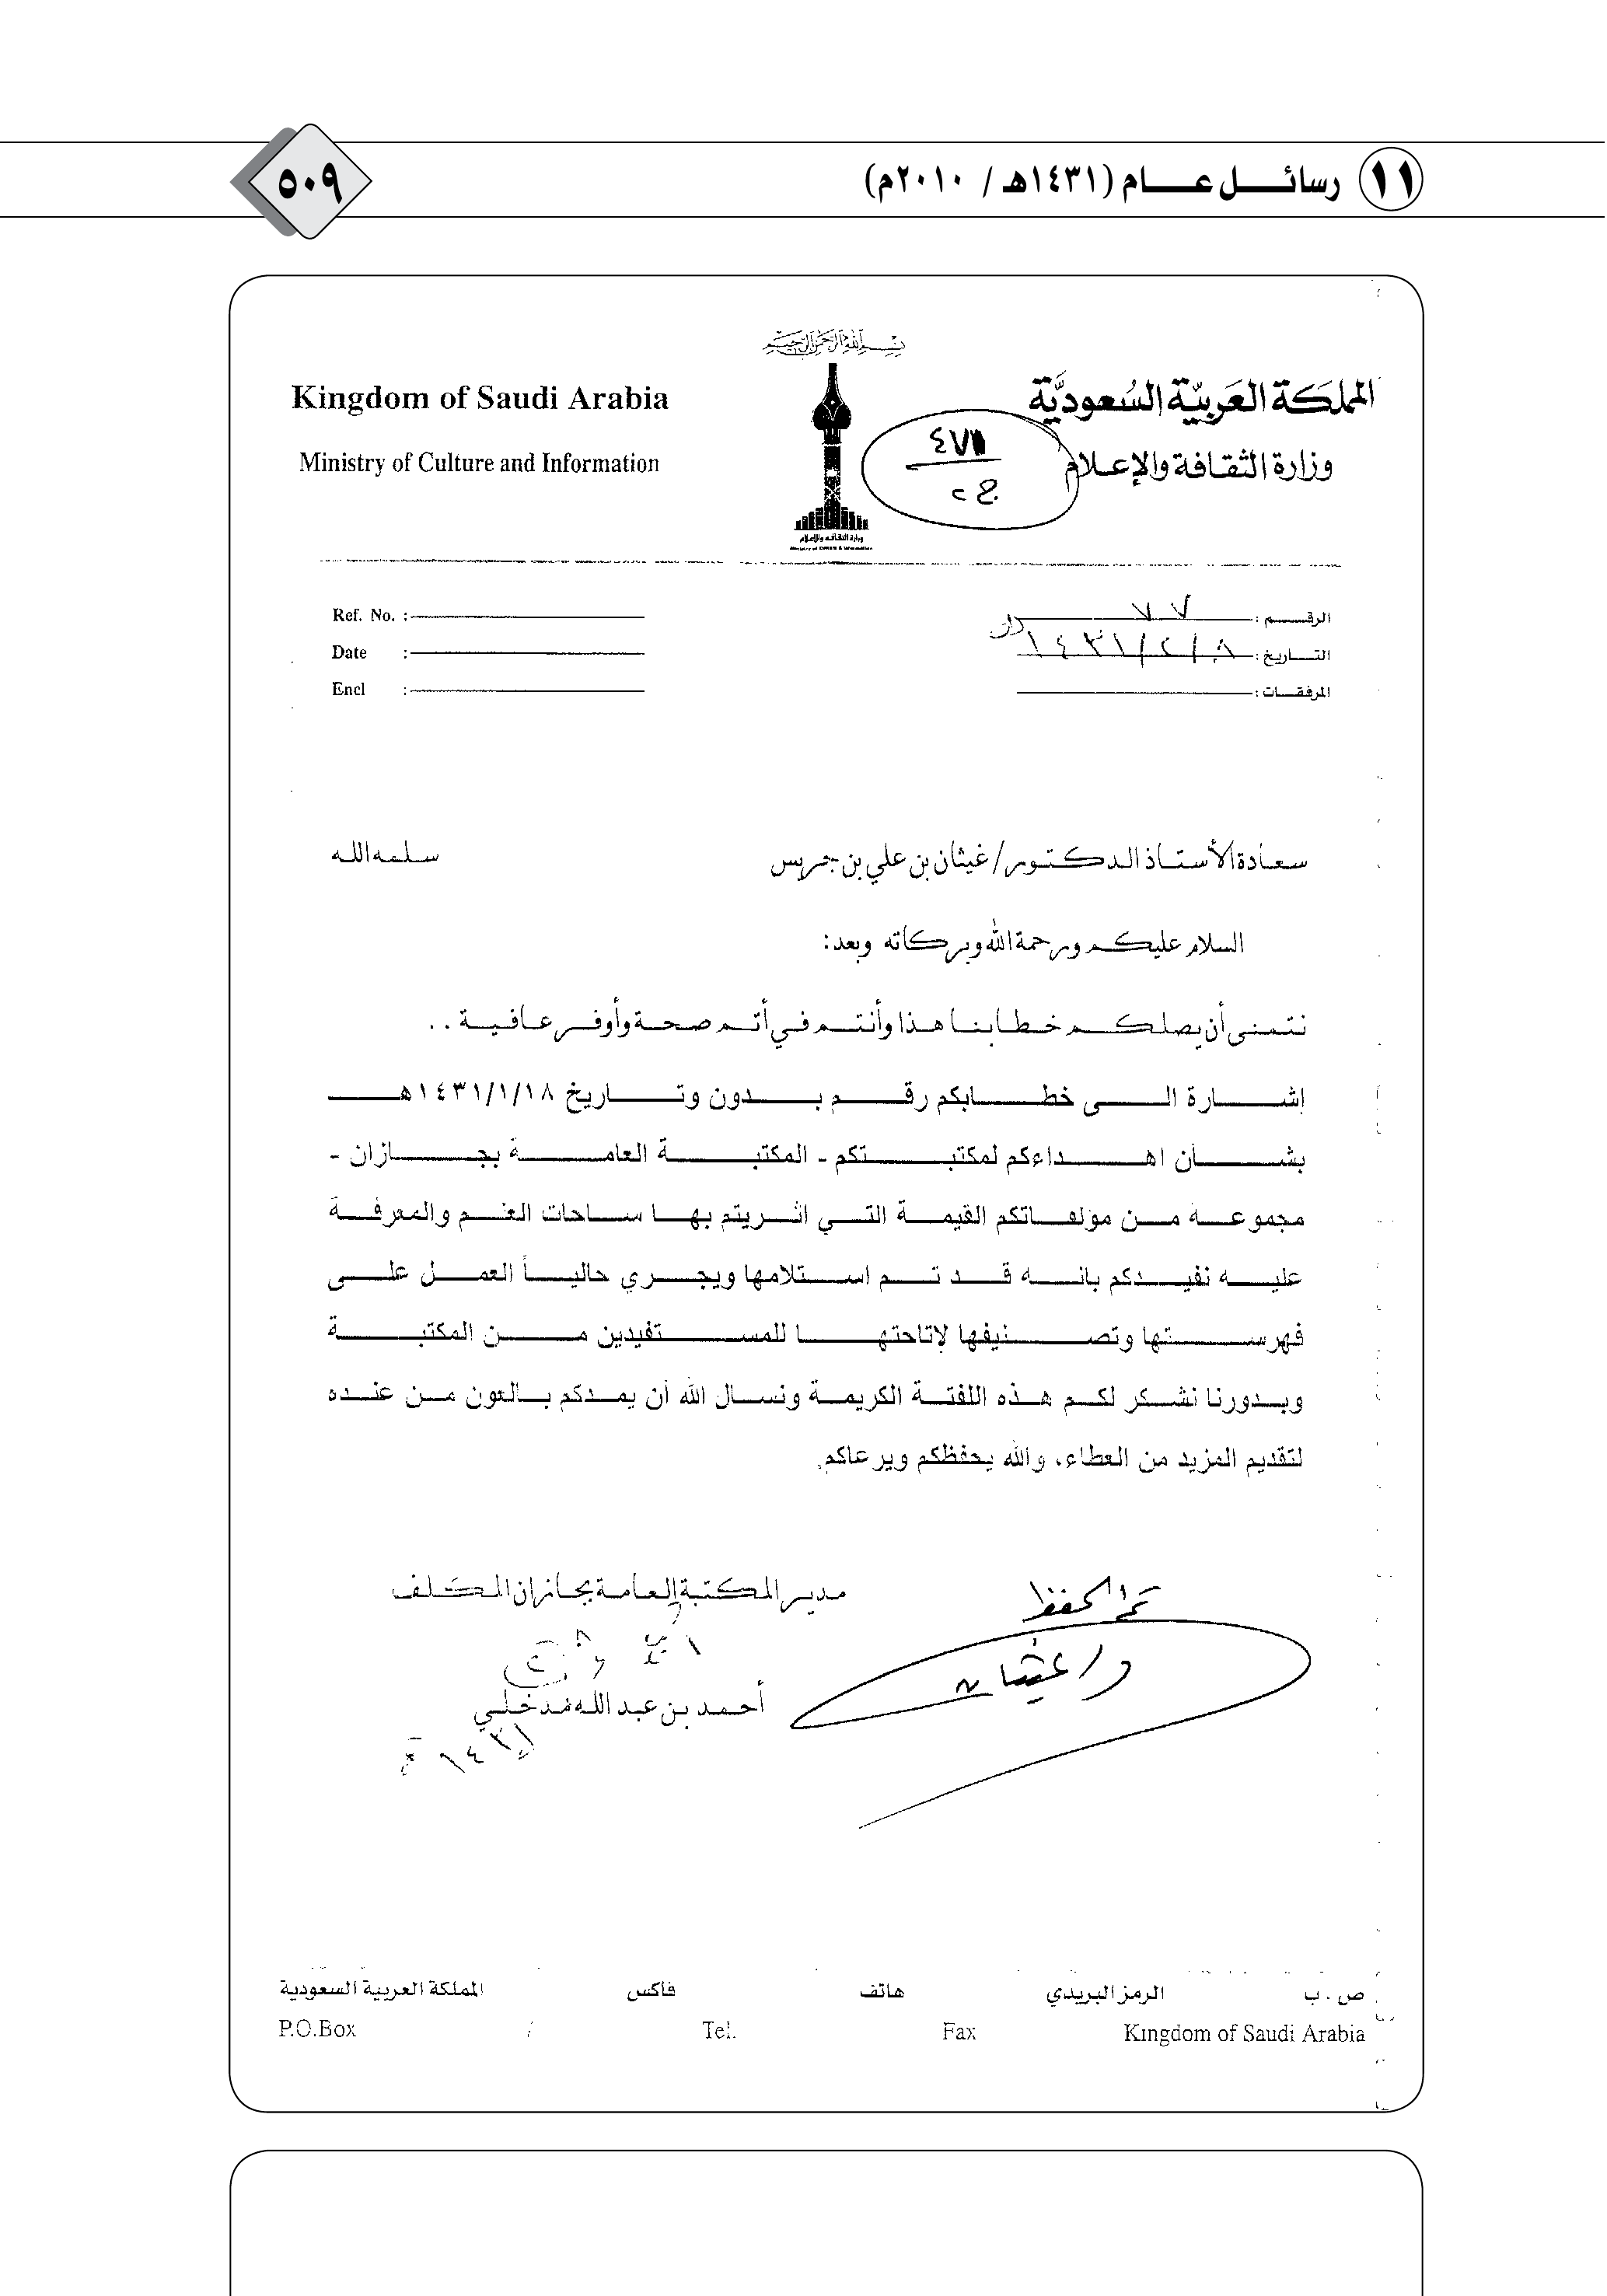 ١١ رسائل عام (١٤٣١هـ / ٢٠١٠م)
٥٠٩
بسم الله الرحمن الرحيم
المملكة العربية السعودية
Kingdom of Saudi Arabia
وزارة الثقافة والإعلام
Ministry of Culture and Information
وزارة الثقافة والإعلام
Ministry of Culture & Information
ج ٢
الرقم : ٧٧
Ref. No. :
التاريخ : ١٤٣١/٢/٨
Date :
المرفقات :
Encl :
سعادة الأستاذ الدكتور/ غيثان بن علي بن جريس سلمه الله
السلام عليكم ورحمة الله وبركاته وبعد:
نتمنى أن يصلكم خطابنا هذا وأنتم في أتم صحة وأوفر عافية . .
إشارة الى خطابكم رقم بدون وتاريخ ١٤٣١/١/١٨هـ
بشأن اهداءكم لمكتبتكم - المكتبة العامة بجازان -
مجموعة من مؤلفاتكم القيمة التي اثريتم بها ساحات العلم والمعرفة
عليه نفيدكم بانه قد تم استلامها ويجري حالياً العمل على
فهرستها وتصنيفها لإتاحتها للمستفيدين من المكتبة
وبدورنا نشكر لكم هذه اللفتة الكريمة ونسال الله أن يمدكم بالعون من عنده
لتقديم المزيد من العطاء، والله يحفظكم ويرعاكم.
مدير المكتبة العامة بجازان المكلف
تم الحفظ
د/ غيثان
أحمد بن عبد الله مدخلي
ص . ب الرمز البريدي هاتف فاكس المملكة العربية السعودية
P.O.Box Tel. Fax Kingdom of Saudi Arabia